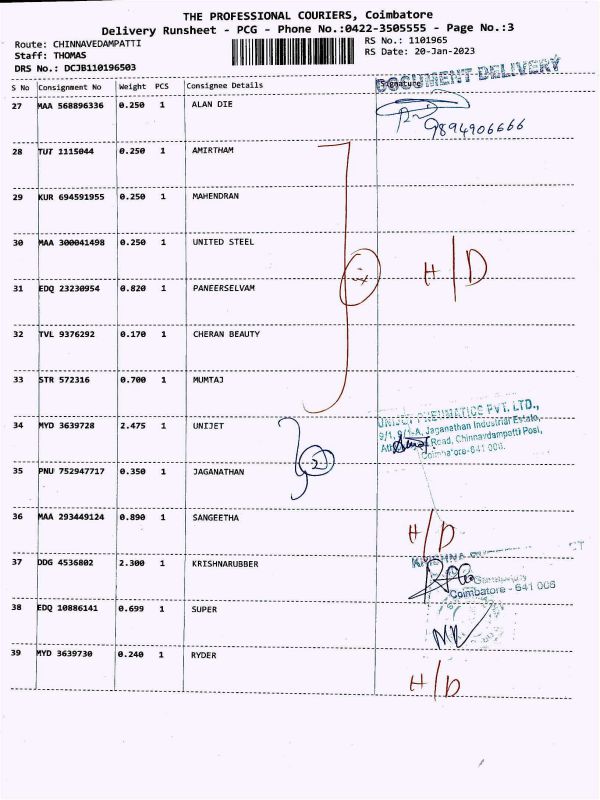 THE PROFESSIONAL COURIERS, Coimbatore
Delivery Runsheet - PCG - Phone No.:0422-3505555 - Page No.:3
Route: CHINNAVEDAMPATTI
RS No.: 1101965
Staff: THOMAS
RS Date: 20-Jan-2023
DRS No.: DCJB110196503
DOCUMENT DELIVERY
S No Consignment No Weight PCS Consignee Details Signature
27 MAA 568896336 0.250 1 ALAN DIE
9894906666
28 TUT 1115044 0.250 1 AMIRTHAM
29 KUR 694591955 0.250 1 MAHENDRAN
30 MAA 300041498 0.250 1 UNITED STEEL
H/D
31 EDQ 23230954 0.820 1 PANEERSELVAM
32 TVL 9376292 0.170 1 CHERAN BEAUTY
33 STR 572316 0.700 1 MUMTAJ
UNIJET PNEUMATICS PVT. LTD.,
34 MYD 3639728 2.475 1 UNIJET
9/1, 9/1-A, Jaganathan Industrial Estate,
Road, Chinnavdampatti Post,
Coimbatore-641 006.
2
35 PNU 752947717 0.350 1 JAGANATHAN
36 MAA 293449124 0.890 1 SANGEETHA
H/D
KRISHNA
37 DDG 4536802 2.300 1 KRISHNARUBBER
Coimbatore - 641 006
38 EDQ 10886141 0.699 1 SUPER
39 MYD 3639730 0.240 1 RYDER
H/D